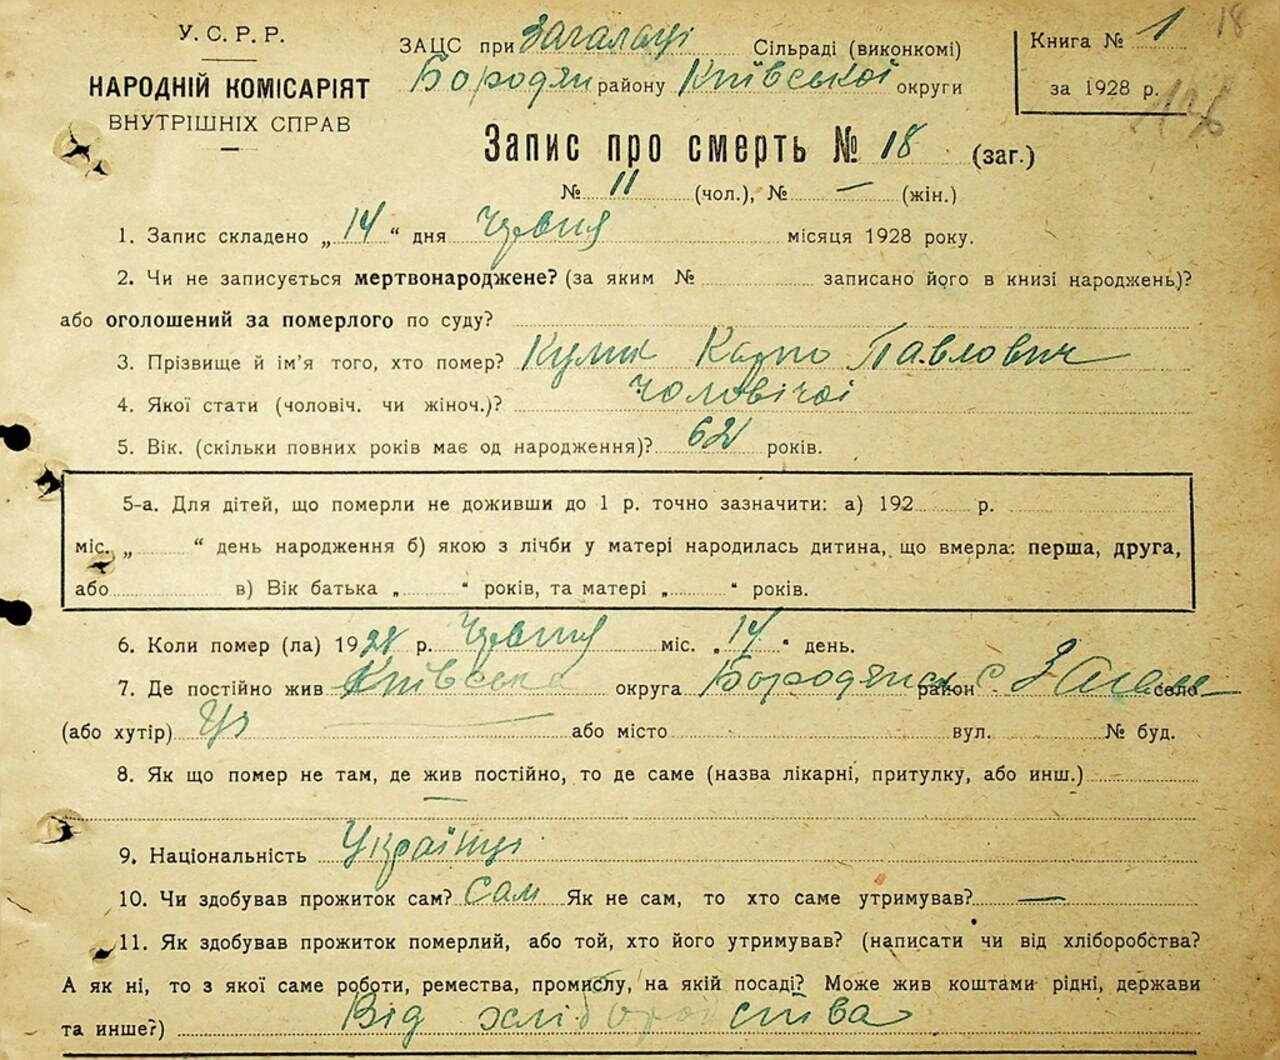 У.С.Р.Р.
НАРОДНІЙ КОМІСАРІЯТ
ВНУТРІШНІХ СПРАВ
ЗАЦС при Загальці Сільраді (виконкомі)
Бородян району Київської округи
Книга № 1
за 1928 р.
18
Запис про смерть № 18 (заг.)
№ 11 (чол.), № — (жін.)
1. Запис складено „ 14 “ дня Червня місяця 1928 року.
2. Чи не записується мертвонароджене? (за яким № записано його в книзі народжень)?
або оголошений за померлого по суду?
3. Прізвище й ім'я того, хто помер? Кулик Карпо Павлович
4. Якої стати (чоловіч. чи жіноч.)? чоловічої
5. Вік. (скільки повних років має од народження)? 62 років.
5-а. Для дітей, що померли не доживши до 1 р. точно зазначити: а) 192 р.
міс. „ “ день народження б) якою з лічби у матері народилась дитина, що вмерла: перша, друга,
або в) Вік батька „ “ років, та матері „ “ років.
6. Коли помер (ла) 1928 р. Червня міс. „ 14 “ день.
7. Де постійно жив Київська округа Бородянск район с Загаль- село
(або хутір) ці або місто вул. № буд.
8. Як що помер не там, де жив постійно, то де саме (назва лікарні, притулку, або инш.)
—
9. Національність Українці
10. Чи здобував прожиток сам? Сам Як не сам, то хто саме утримував? —
11. Як здобував прожиток померлий, або той, хто його утримував? (написати чи від хліборобства?
А як ні, то з якої саме роботи, ремества, промислу, на якій посаді? Може жив коштами рідні, держави
та инше?) Від хліборобства